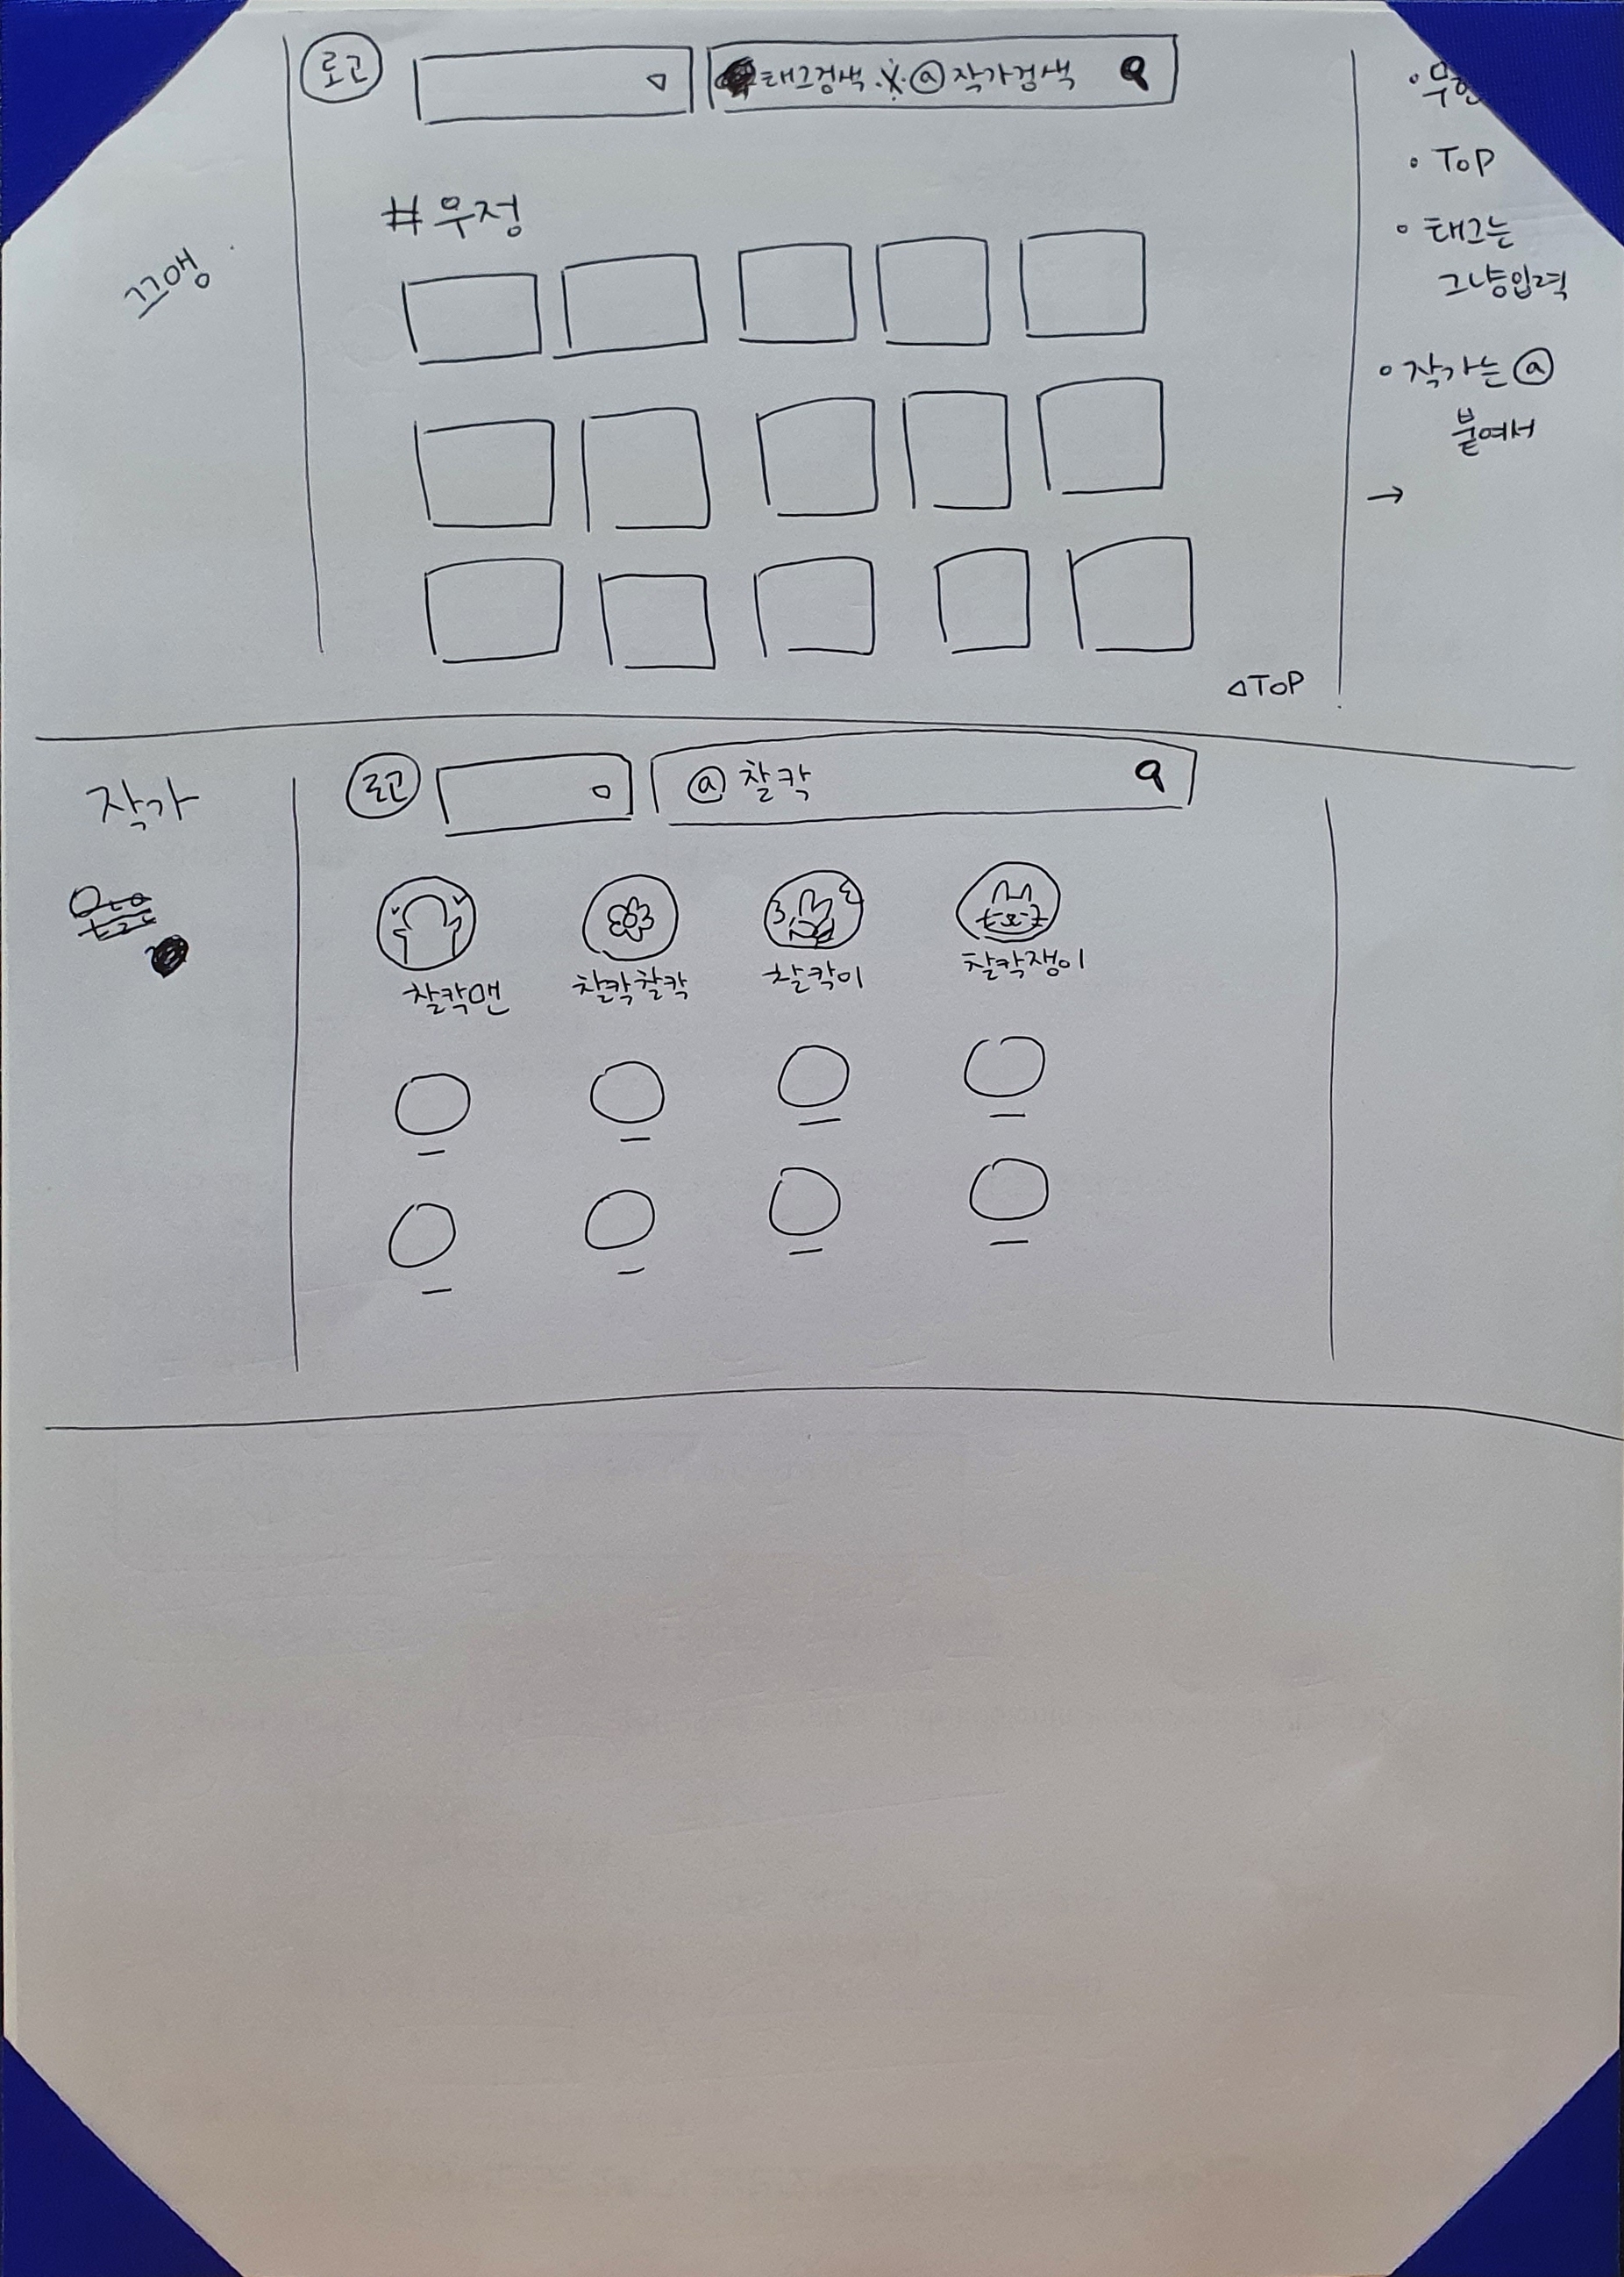 로고
태그검색 · @작가검색
#우정
끄앵
TOP
· 무한
· TOP
· 태그는
그냥입력
· 작가는 @
붙여서
→
작가
로고
@찰칵
찰칵맨
찰칵찰칵
찰칵이
찰칵쟁이